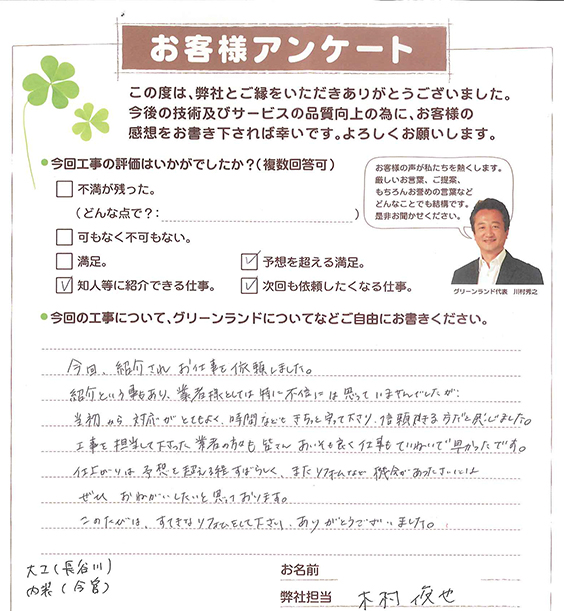 お客様アンケート
この度は、弊社とご縁をいただきありがとうございました。
今後の技術及びサービスの品質向上の為に、お客様の
感想をお書き下されば幸いです。よろしくお願いします。
●今回工事の評価はいかがでしたか?(複数回答可)
不満が残った。
(どんな点で?: )
可もなく不可もない。
満足。
予想を超える満足。
知人等に紹介できる仕事。
次回も依頼したくなる仕事。
お客様の声が私たちを熱くします。
厳しいお言葉、ご提案、
もちろんお誉めの言葉など
どんなことでも結構です。
是非お聞かせください。
グリーンランド代表 川村秀之
●今回の工事について、グリーンランドについてなどご自由にお書きください。
今回、紹介されお仕事を依頼しました。
紹介という事もあり、業者様としては特に不信には思っていませんでしたが
当初から対応がとてもよく、時間などもきちっと守って下さり、信頼できる方だと感じました。
工事を担当して下さった業者の方々も皆さんあいそも良く仕事もていねいで早かったです。
仕上がりは予想を超える程すばらしく、またリフォームなど機会があったさいには
ぜひおねがいしたいと思っております。
このたびは、すてきなリフォームをして下さい、ありがとうございました。
大工(長谷川)
内装(今宮)
お名前
弊社担当 木村俊也